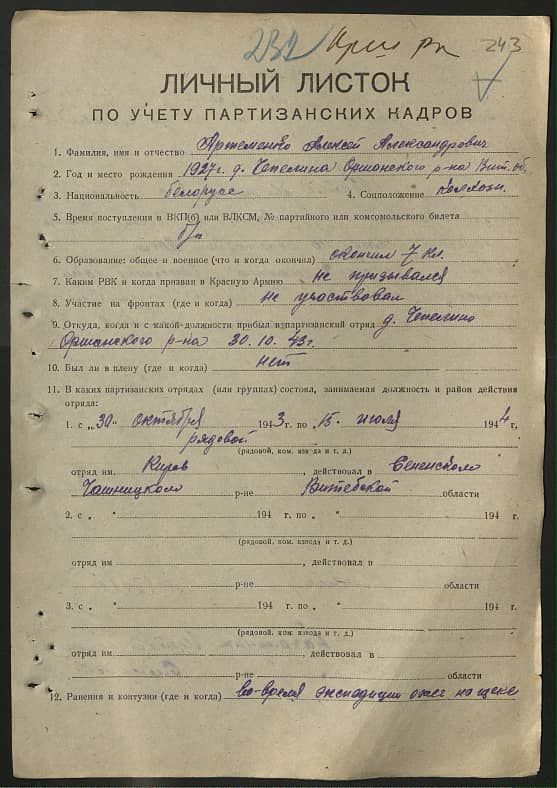 232 243
ЛИЧНЫЙ ЛИСТОК
ПО УЧЕТУ ПАРТИЗАНСКИХ КАДРОВ
1. Фамилия, имя и отчество Артеменко Алексей Александрович
2. Год и место рождения 1927г. д. Чепелина Оршанского р-на Вит. об.
3. Национальность белорусс 4. Соцположение колхозн.
5. Время поступления в ВКП(б) или ВЛКСМ, № партийного или комсомольского билета
б/п
6. Образование: общее и военное (что и когда окончил) окончил 7 кл.
7. Каким РВК и когда призван в Красную Армию не призывался
8. Участие на фронтах (где и когда) не участвовал
9. Откуда, когда и с какой должности прибыл в партизанский отряд д. Чепелино
Оршанского р-на 30.10.43г.
10. Был ли в плену (где и когда) нет
11. В каких партизанских отрядах (или группах) состоял, занимаемая должность и район действия
отряда:
1. с „30" октября 1943г. по „15. июля 1944 г,
рядовой
(рядовой, ком. взвода и т. д.)
отряд им. Киров, действовал в Сененском
Чашницком р-не Витебской области
2. с „ " 194 г. по „ " 194 г.
(рядовой, ком. взвода и т. д.)
отряд им, действовал в
р-не области
3. с „ " 194 г. по „ " 194 г.
(рядовой, ком. взвода и т. д.)
отряд им., действовал в
р-не области
12. Ранения и контузии (где и когда) во-время экспедиции ожог на щеке